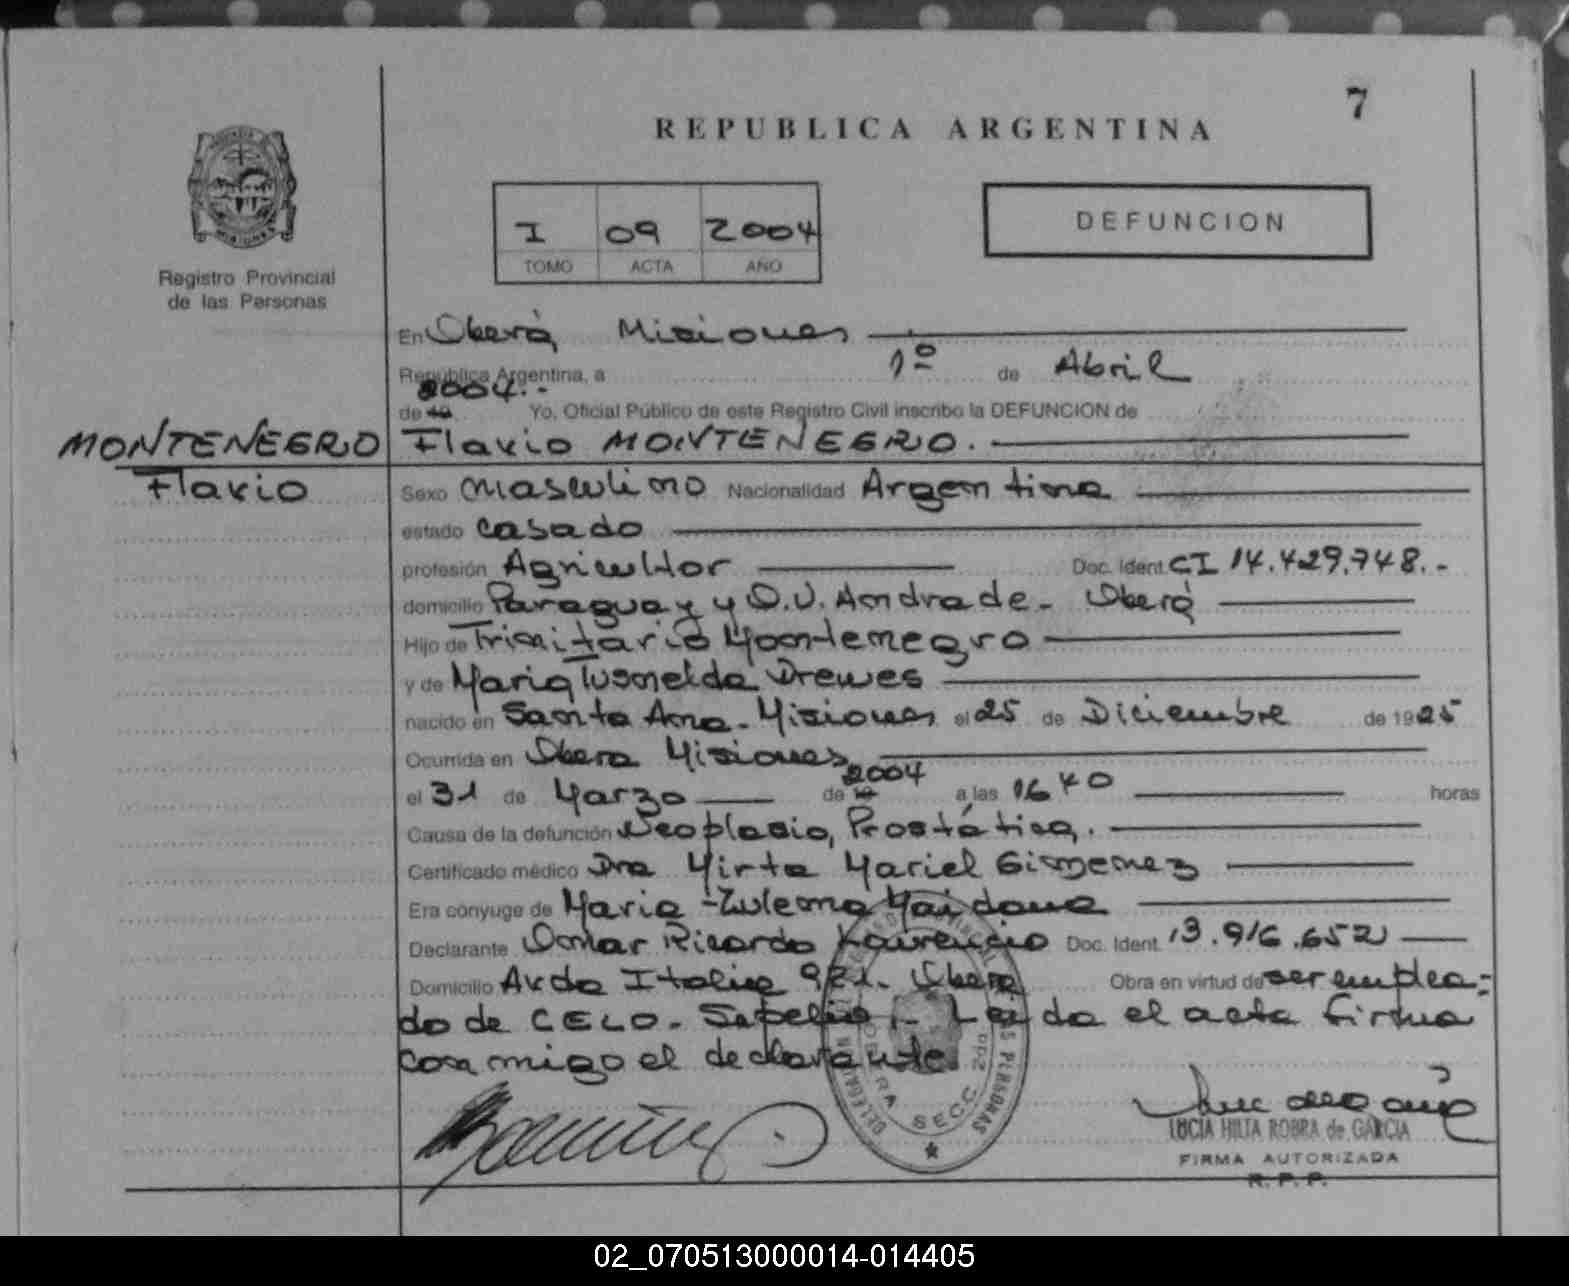 7
REPUBLICA ARGENTINA
I 09 2004
TOMO ACTA AÑO
DEFUNCION
Registro Provincial
de las Personas
En Oberá Misiones
República Argentina, a 1º de Abril
2004.-
de 19 Yo, Oficial Público de este Registro Civil inscribo la DEFUNCION de
MONTENEGRO
Flavio
Flavio MONTENEGRO.
Sexo masculino Nacionalidad Argentina
estado casado
profesión Agricultor Doc. Ident. CI 14.429.748.-
domicilio Paraguay y O.V. Andrade - Oberá
Hijo de Trinitario Montenegro
y de Maria Tusnelda Drewes
nacido en Santa Ana - Misiones el 25 de Diciembre de 1925
Ocurrida en Obera Misiones
el 31 de Marzo de 19 2004 a las 16 40 horas
Causa de la defunción Neoplasia, Prostática.
Certificado médico Dra Mirta Mariel Gimenez
Era cónyuge de Maria Zulema Maidana
Declarante Omar Ricardo Laurencio Doc. Ident. 13.916.652
Domicilio Avda Italia 921 - Obera Obra en virtud de ser emplea-
do de CELO - Sepelio.- Leida el acta firma
conmigo el declarante
SECC. 2da
LUCIA HILIA ROBRA de GARCIA
FIRMA AUTORIZADA
R. P. P.
02_070513000014-014405